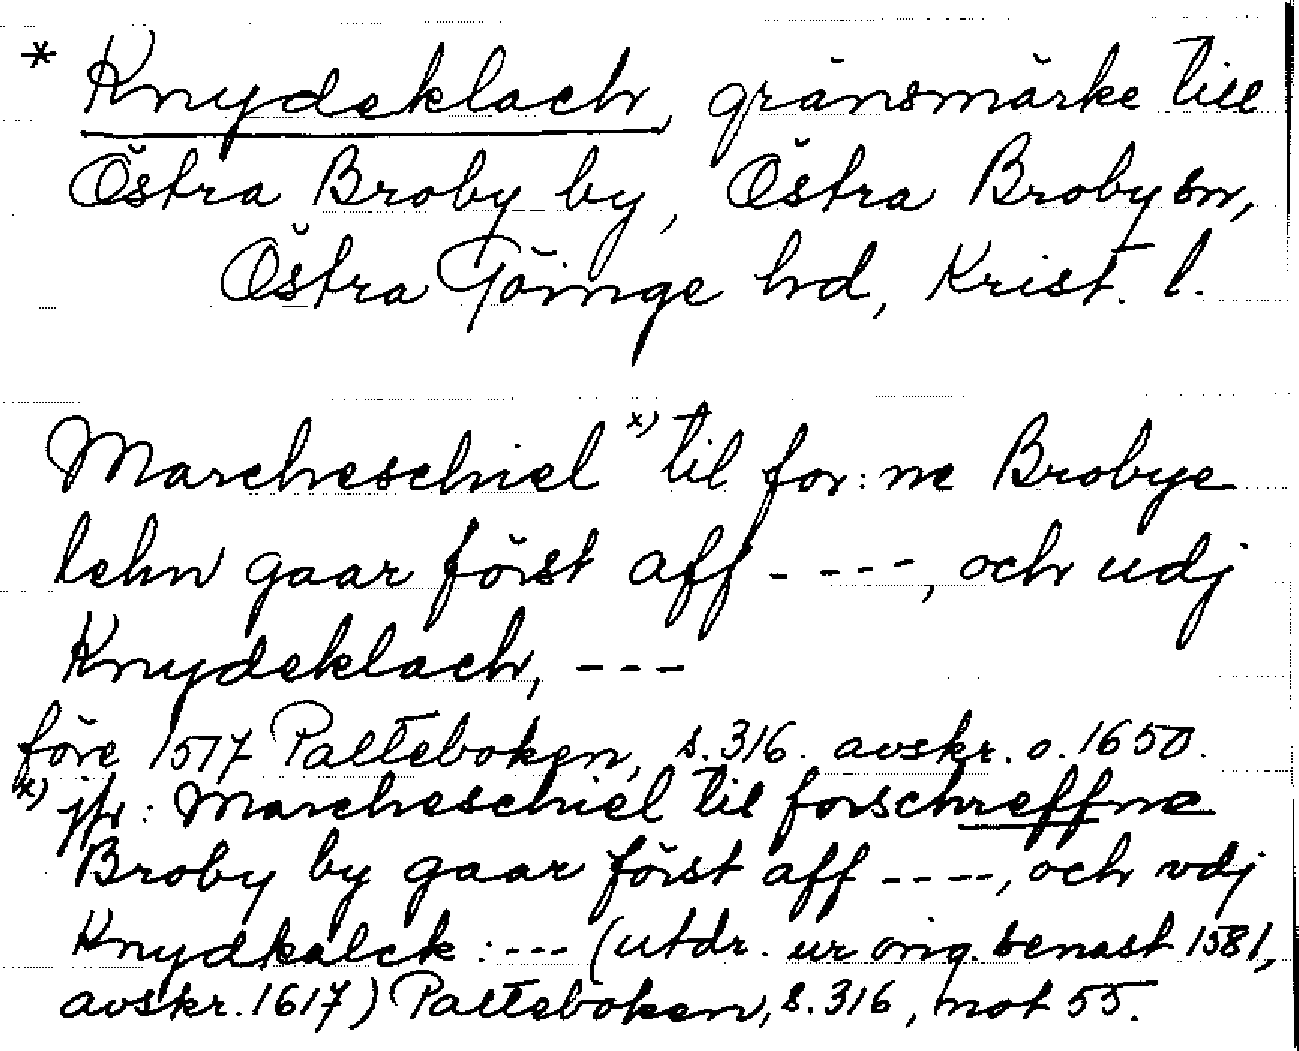 * Knydeklach, gränsmärke till
Östra Broby by, Östra Broby sn,
Östra Göinge hd, Krist. l.
Marcheschiel x) til for:ne Brobye
lehn gaar först aff ----, och udj
Knydeklach, ---
före 1517 Palteboken, s.316. avskr. o.1650.
x) jfr: Marcheschiel til forschreffne
Broby by gaar först aff ----, och vdj
Knydkalck :--- (utdr. ur orig. senast 1581,
avskr. 1617) Palteboken, s.316, not 55.